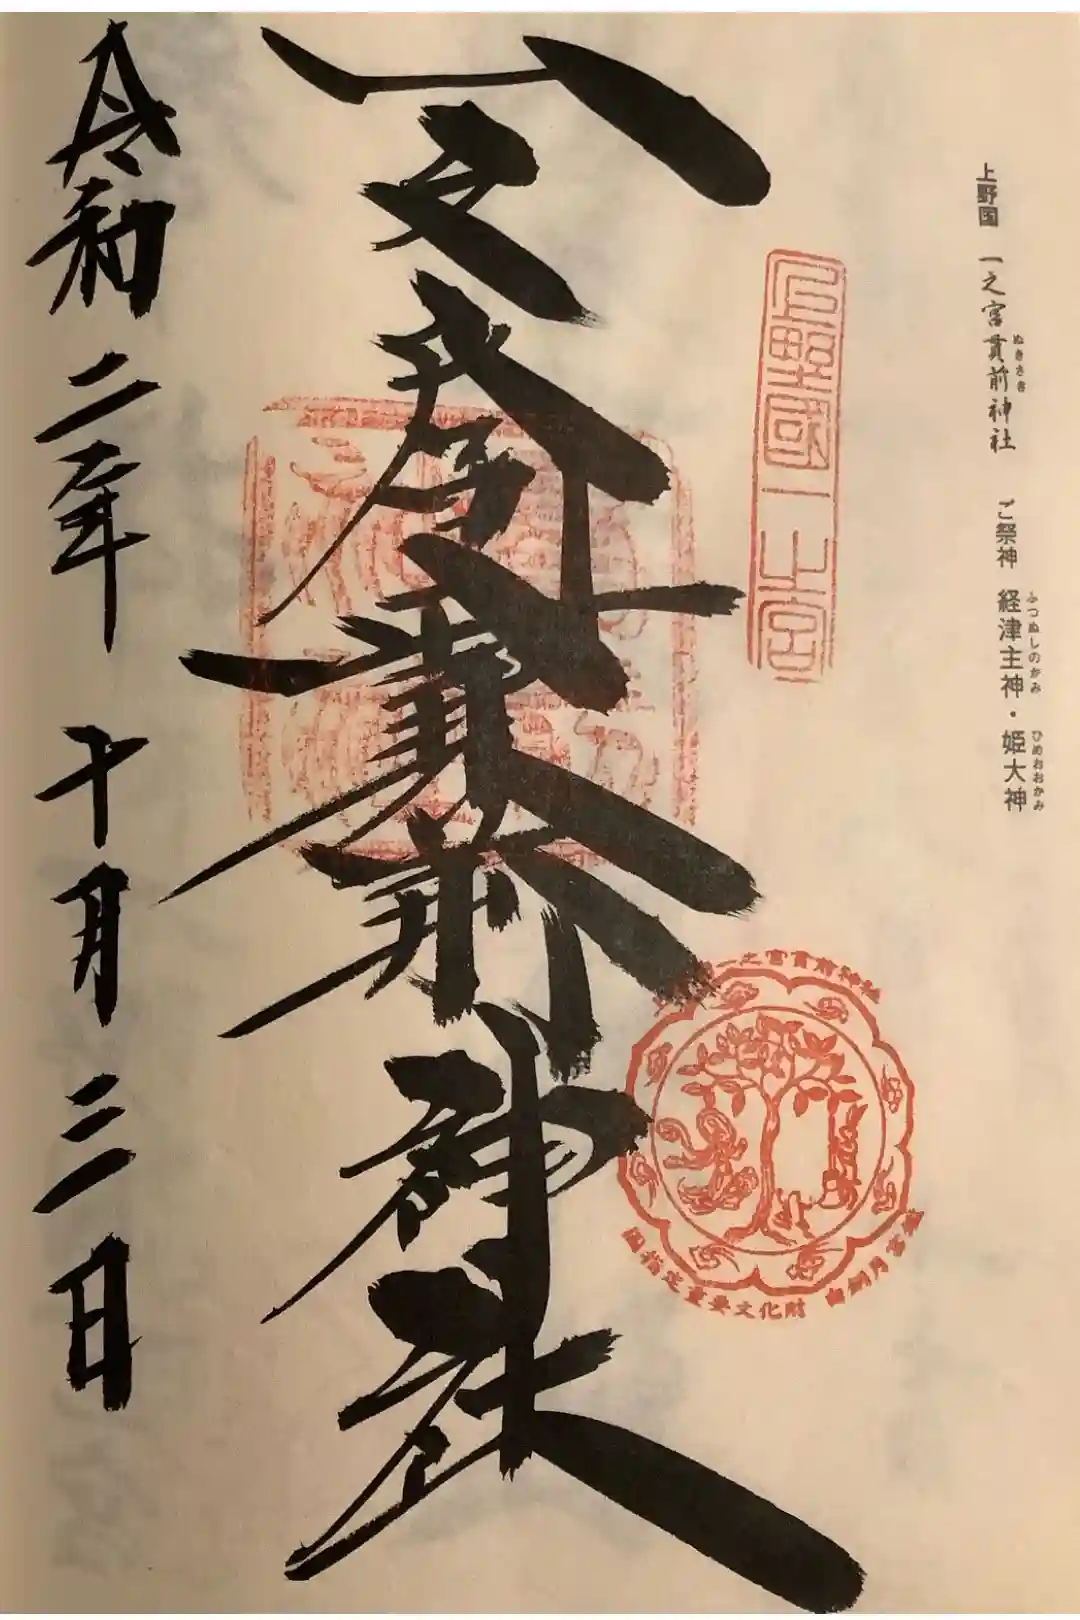 上野国 一之宮貫前神社 ご祭神 経津主神・姫大神
ぬきさき
ふつぬしのかみ ひめおおかみ
上野國一之宮
一之宮貫前神社
一之宮貫前神社
国指定重要文化財 白銅月宮鑑
令和二年 十月 三日